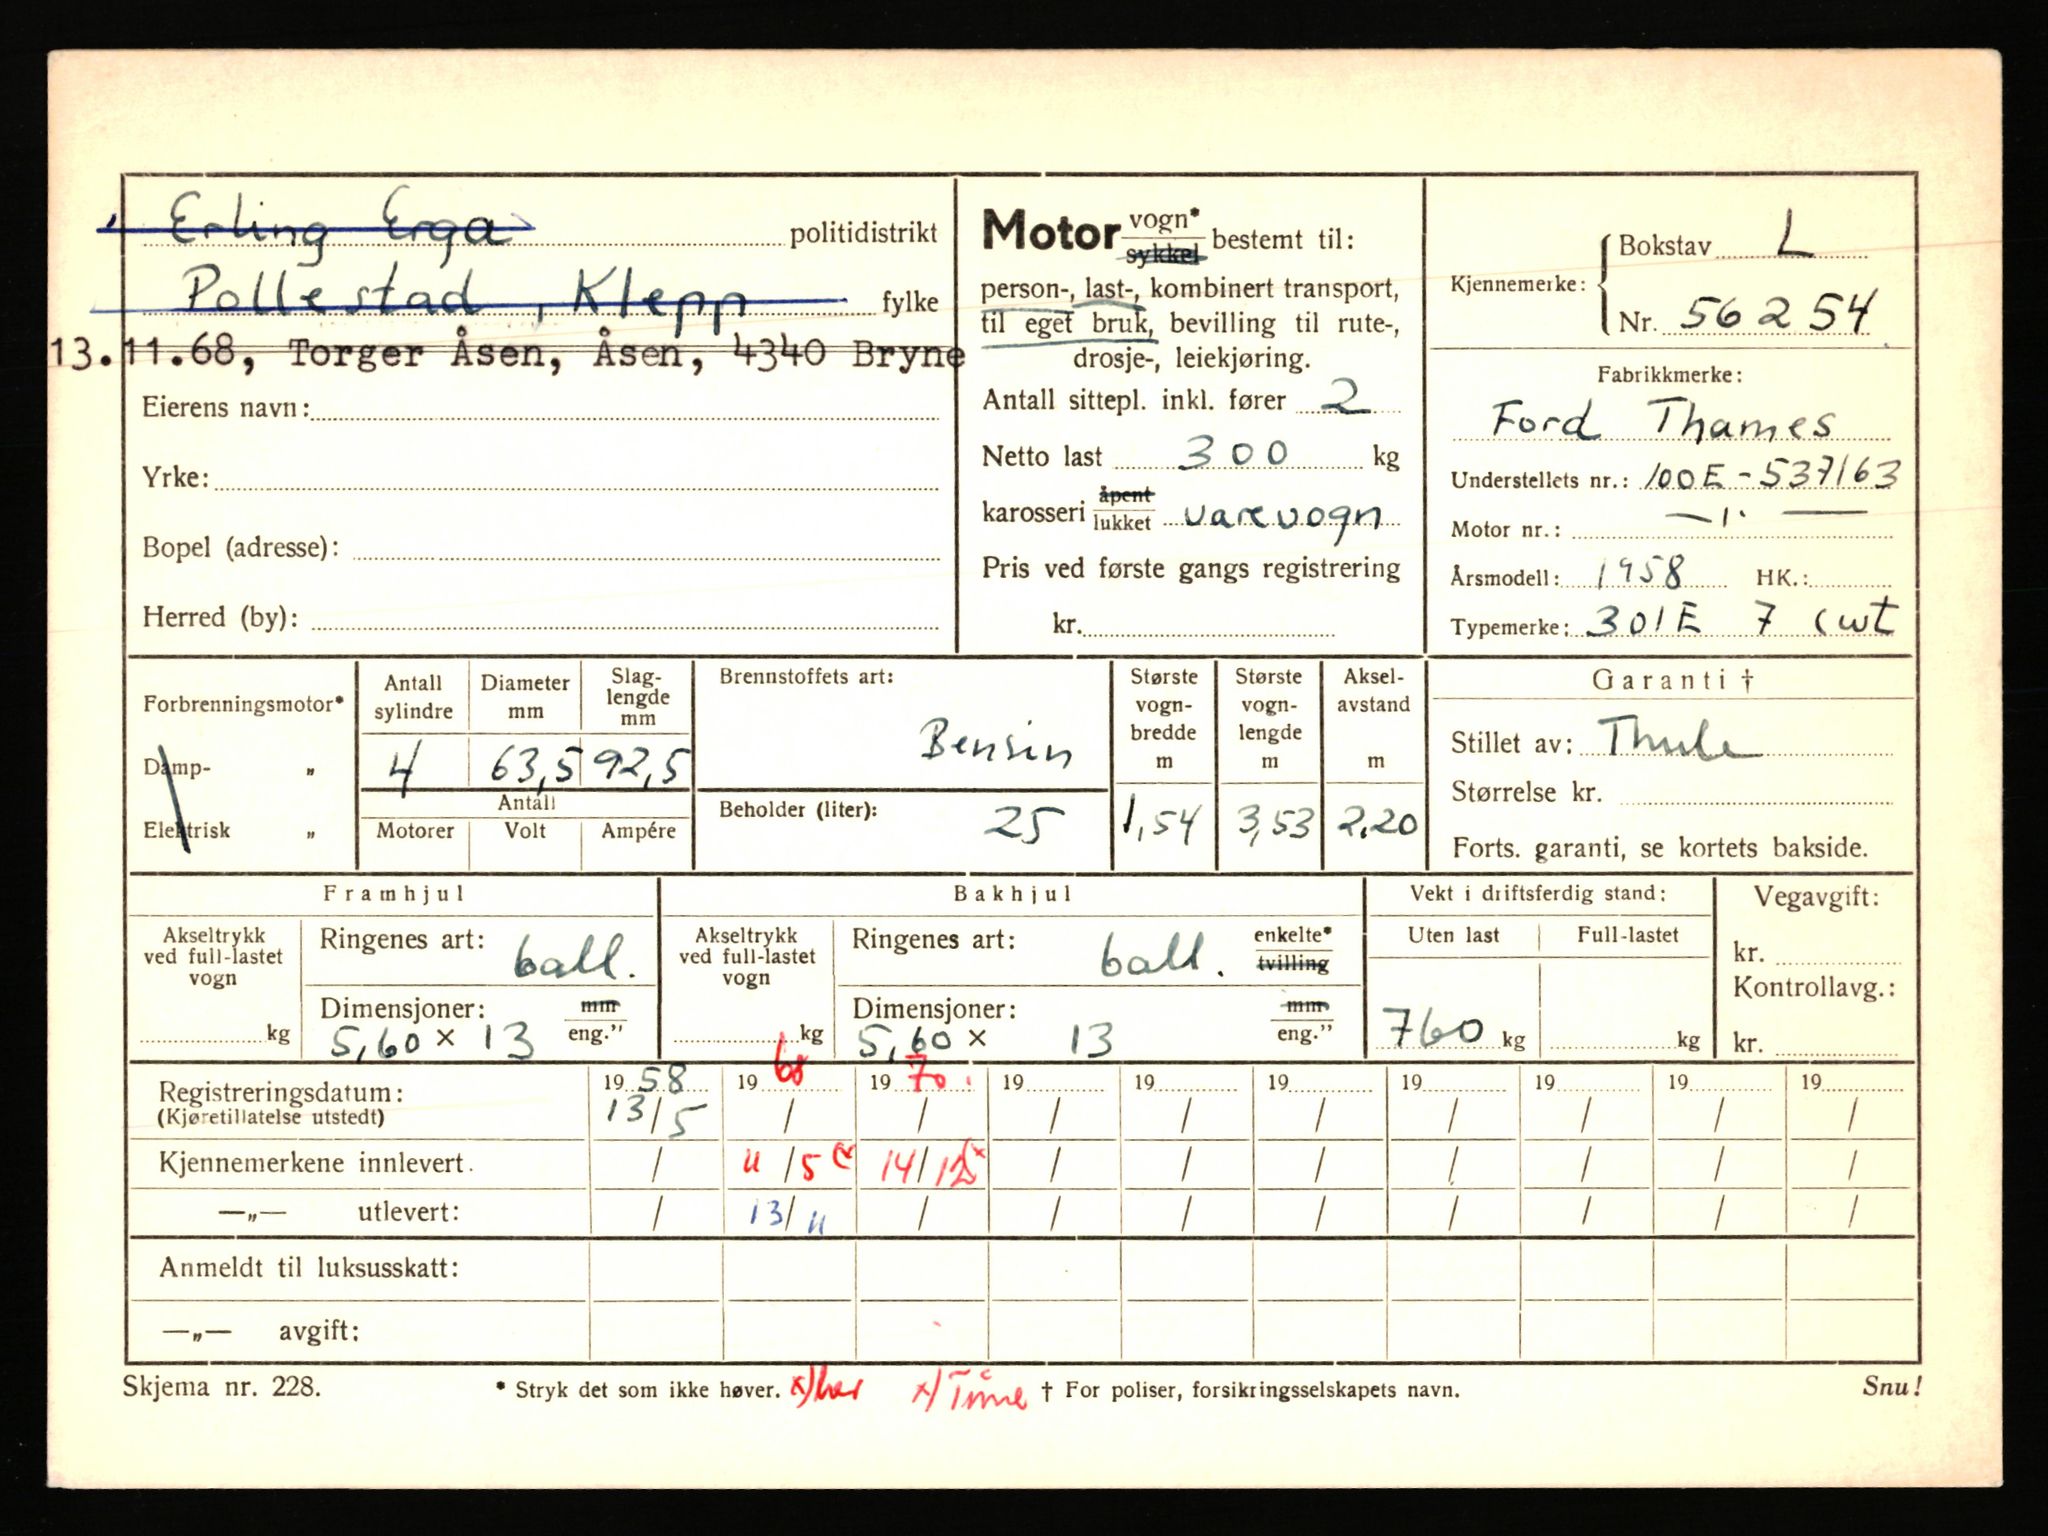 Erling Erga politidistrikt
Pollestad, Klepp fylke
13.11.68, Torger Åsen, Åsen, 4340 Bryne
Eierens navn:
Yrke:
Bopel (adresse):
Herred (by):
Motor vogn* sykkel bestemt til:
person-, last-, kombinert transport,
til eget bruk, bevilling til rute-,
drosje-, leiekjøring.
Antall sittepl. inkl. fører 2
Netto last 300 kg
karosseri åpent lukket varevogn
Pris ved første gangs registrering
kr.
Kjennemerke: Bokstav L
Nr. 56254
Fabrikkmerke:
Ford Thames
Understellets nr.: 100E-537163
Motor nr.: —ı· —
Årsmodell: 1958 HK.:
Typemerke: 301E 7 cwt
Forbrenningsmotor*
Damp- „
Elektrisk „
Antall sylindre 4
Diameter mm 63,5
Slag-lengde mm 92,5
Antall
Motorer Volt Ampére
Brennstoffets art:
Bensin
Beholder (liter): 25
Største vogn-bredde m 1,54
Største vogn-lengde m 3,53
Aksel-avstand m 2,20
Garanti †
Stillet av: Thule
Størrelse kr.
Forts. garanti, se kortets bakside.
Framhjul
Akseltrykk ved full-lastet vogn kg
Ringenes art: ball.
Dimensjoner: mm
5,60 x 13 eng."
Bakhjul
Akseltrykk ved full-lastet vogn kg
Ringenes art: ball. enkelte* tvilling
Dimensjoner: mm
5,60 x 13 eng."
Vekt i driftsferdig stand:
Uten last Full-lastet
760 kg kg
Vegavgift:
kr.
Kontrollavg.:
kr.
Registreringsdatum: 1958 1968 1970. 19 19 19 19 19 19 19
(Kjøretillatelse utstedt) 13/5 / / / / / / / / /
Kjennemerkene innlevert. / 11/5 x) 14/12 x) / / / / / / /
—„— utlevert: / 13/11 / / / / / / / /
Anmeldt til luksusskatt:
—„— avgift:
Skjema nr. 228. * Stryk det som ikke høver. x) her x) Time † For poliser, forsikringsselskapets navn. Snu!